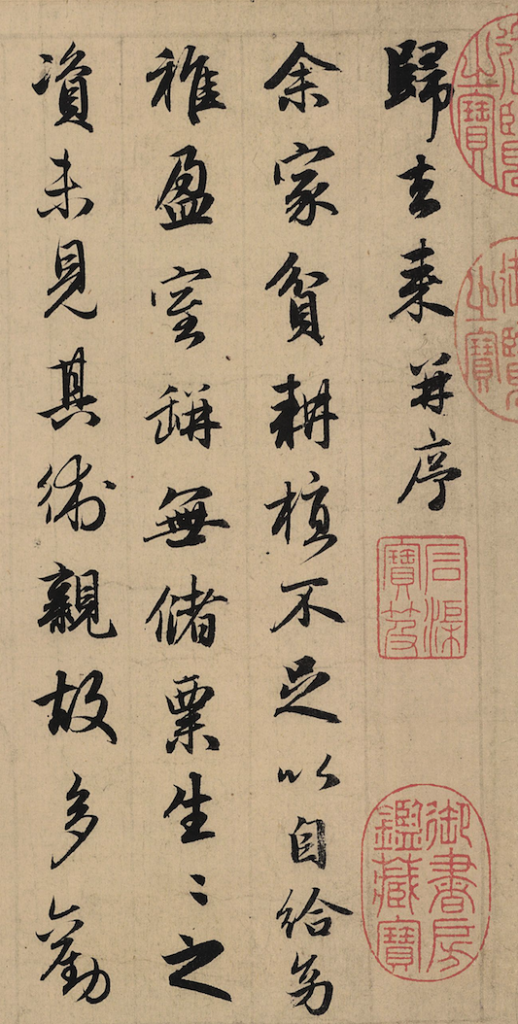 之寶
之寶
歸去来并序
石渠寶笈
御書房鑑藏寶
余家貧耕植不足以自給幼
稚盈室缾無儲粟生〻之
資未見其術親故多勸